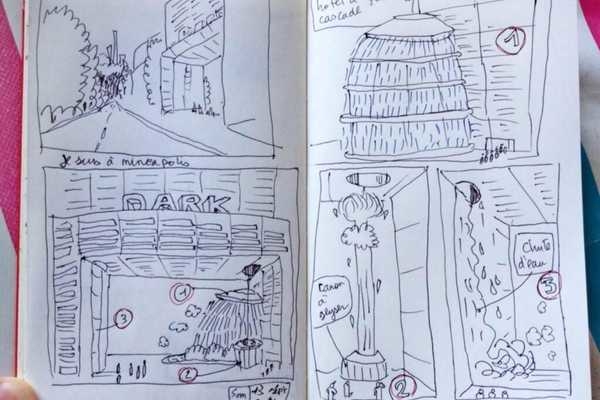 Je suis à mineapolis
DARK
1
3
2
hotel à
cascade
1
Canon
à
geyser
2
chute
d'eau
3